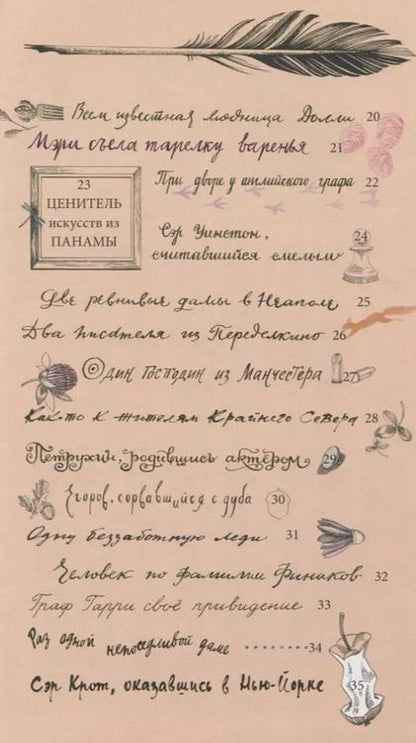 Всем известная модница Долли 20
Мэри съела тарелку варенья 21
При дворе у английского графа 22
23
ЦЕНИТЕЛЬ
искусств из
ПАНАМЫ
Сэр Уинстон, 24
считавшийся смелым
Две ревнивые дамы в Неаполе 25
Два писателя из Переделкино 26
Один господин из Манчестера 27
Как-то к жителям Крайнего Севера 28
Петрухин, родившись актёром 29
Егоров, сорвавшийся с дуба 30
Одну беззаботную леди 31
Человек по фамилии Фиников 32
Граф Гарри своё привидение 33
Раз одной непоседливой даме ........34
Сэр Крот, оказавшись в Нью-Йорке 35